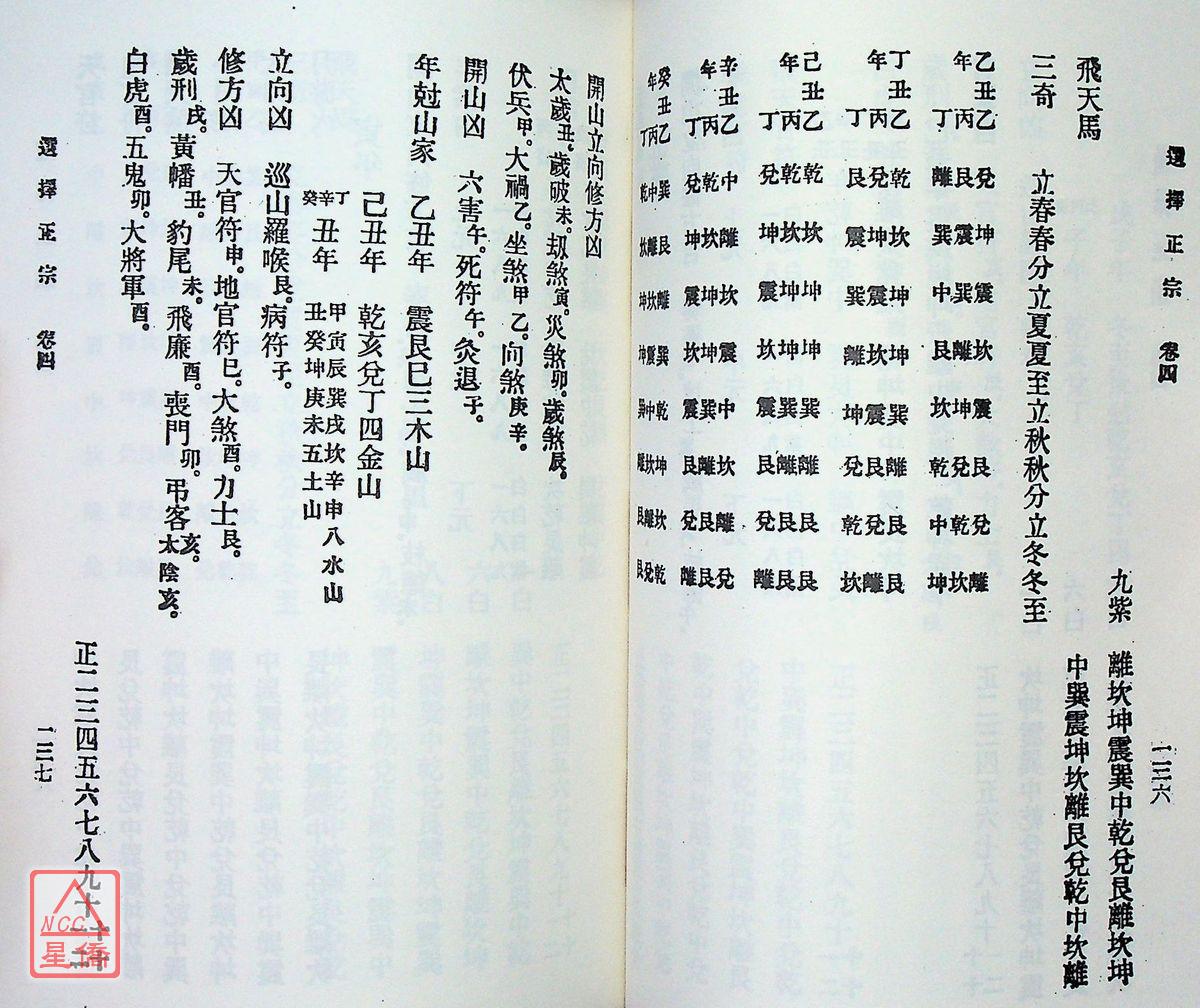 選擇正宗 卷四 一三六
九紫 離坎坤震巽中乾兌艮離坎坤
飛天馬 中巽震坤坎離艮兌乾中坎離
三奇 立春春分立夏夏至立秋秋分立冬冬至
乙丑年 乙 兌坤震坎震艮兌離
丙 艮震巽離坤兌乾坎
丁 離巽中艮坎乾中坤
丁丑年 乙 乾坎坤坤巽離艮艮
丙 兌坤震坎震艮兌離
丁 艮震巽離坤兌乾坎
己丑年 乙 乾坎坤坤巽離艮艮
丙 乾坎坤坤巽離艮艮
丁 兌坤震坎震艮兌離
辛丑年 乙 中離坎震中坎離兌
丙 乾坎坤坤巽離艮艮
丁 兌坤震坎震艮兌離
癸丑年 乙 巽艮離巽乾坤坎乾
丙 中離坎震中坎離兌
丁 乾坎坤坤巽離艮艮
開山立向修方凶
太歲丑。歲破未。刼煞寅。災煞卯。歲煞辰。
伏兵甲。大禍乙。坐煞甲乙。向煞庚辛。
開山凶 六害午。死符午。灸退子。
年尅山家 乙丑年 震艮巳三木山
己丑年 乾亥兌丁四金山
丁辛癸丑年 甲寅辰巽戌坎辛申八水山
丑癸坤庚未五土山
立向凶 巡山羅喉艮。病符子。
修方凶 天官符申。地官符巳。大煞酉。力士艮。
歲刑戌。黃幡丑。豹尾未。飛廉酉。喪門卯。弔客亥。太陰亥。
白虎酉。五鬼卯。大將軍酉。
正二三四五六七八九十十一十二
選擇正宗 卷四 一三七
NCC
星僑